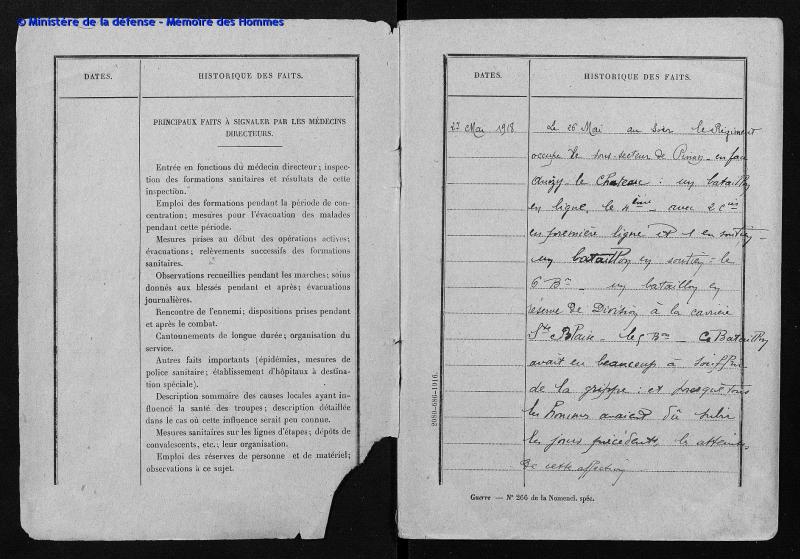 © Ministère de la défense - Mémoire des Hommes
DATES.
HISTORIQUE DES FAITS.
PRINCIPAUX FAITS À SIGNALER PAR LES MÉDECINS
DIRECTEURS.
Entrée en fonctions du médecin directeur; inspec-
tion des formations sanitaires et résultats de cette
inspection.
Emploi des formations pendant la période de con-
centration; mesures pour l'évacuation des malades
pendant cette période.
Mesures prises au début des opérations actives;
évacuations; relèvements successifs des formations
sanitaires.
Observations recueillies pendant les marches; soins
donnés aux blessés pendant et après; évacuations
journalières.
Rencontre de l'ennemi; dispositions prises pendant
et après le combat.
Cantonnements de longue durée; organisation du
service.
Autres faits importants (épidémies, mesures de
police sanitaire; établissement d'hôpitaux à destina-
tion spéciale).
Description sommaire des causes locales ayant in-
fluencé la santé des troupes; description détaillée
dans le cas où cette influence serait peu connue.
Mesures sanitaires sur les lignes d'étapes; dépôts de
convalescents, etc.; leur organisation.
Emploi des réserves de personne et de matériel;
observations à ce sujet.
DATES.
HISTORIQUE DES FAITS.
27 Mai 1918
Le 26 Mai au soir le Régiment
occupe le sous-secteur de Pinon - en face
Anizy-le Château : un bataillon
en ligne, le 4ème - avec 2 Cies
en première ligne et 1 en soutien -
un bataillon en soutien - le
6 Bon - un bataillon en
réserve de Division à la carrière
Ste Blaise - le 5 Bon - Ce Bataillon
avait eu beaucoup à souffrir
de la grippe : et presque tous
les hommes avaient dû subir
les jours précédents les atteintes
de cette affection
2089-686-1916.
Guerre — N° 266 de la Nomencl. spéc.